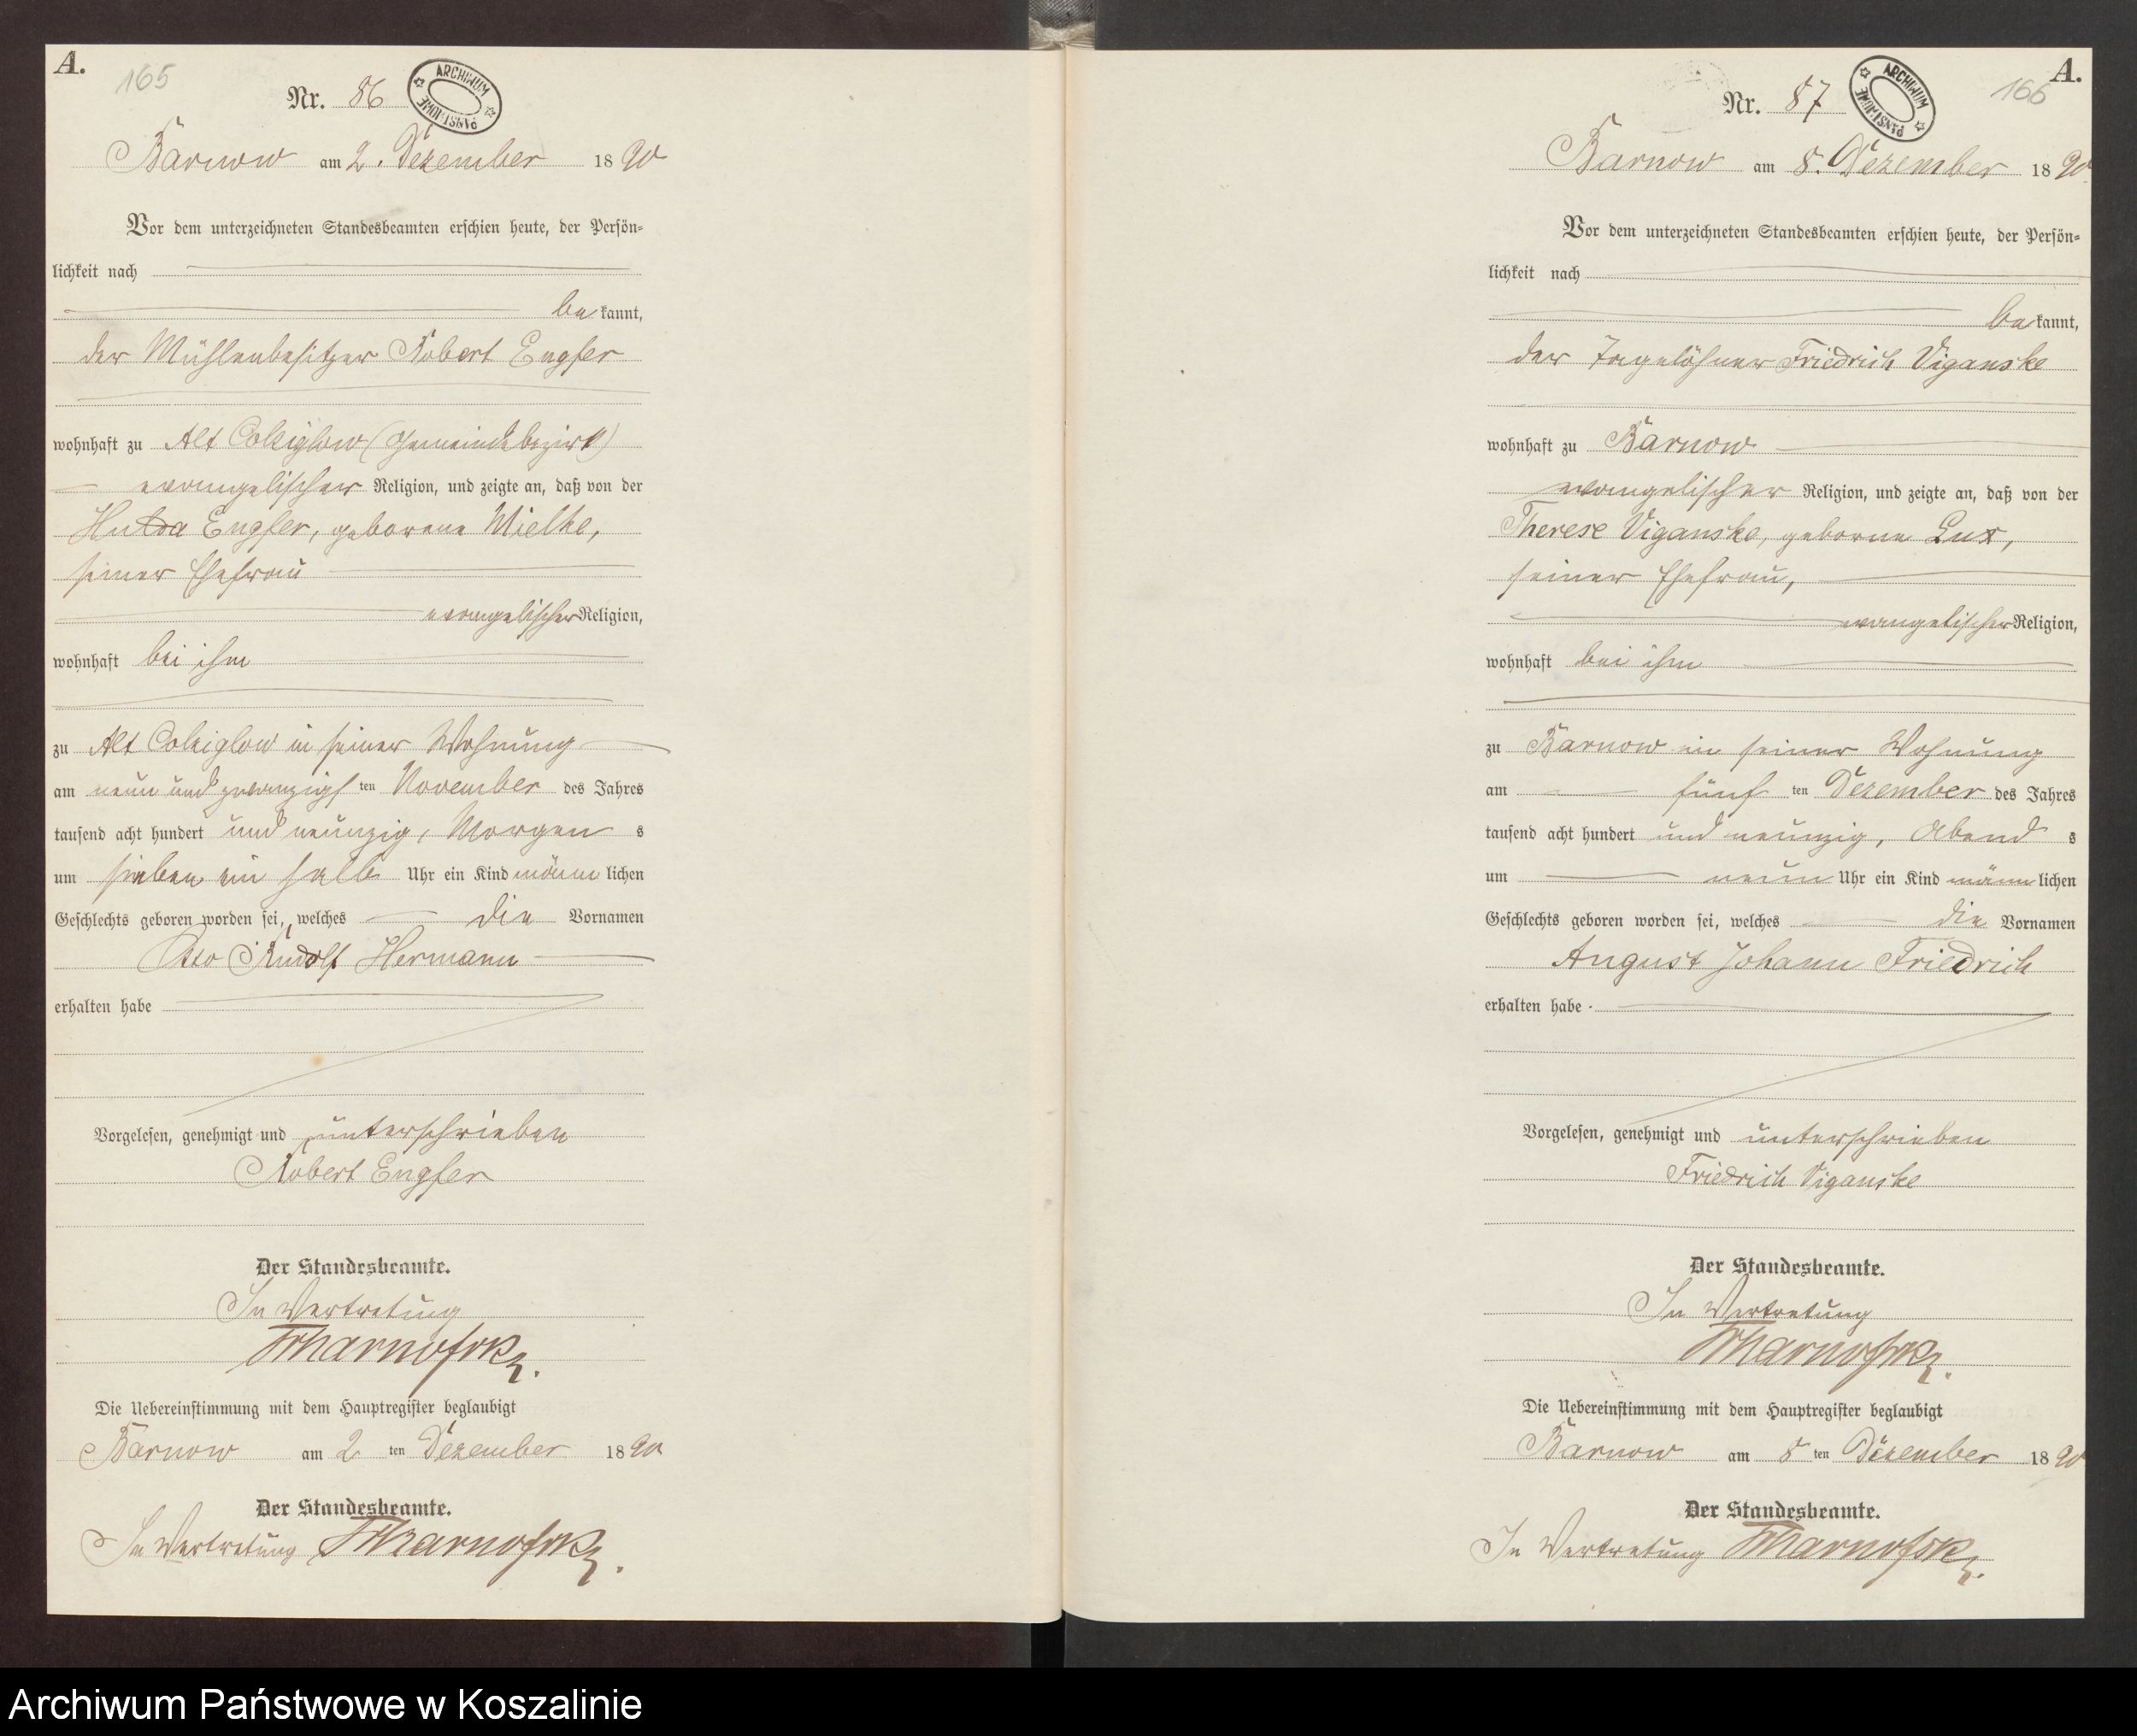 A.
165
Nr. 86
ARCHIWUM PAŃSTWOWE
Barnow am 2. Dezember 1890
Vor dem unterzeichneten Standesbeamten erschien heute, der Persön-
lichkeit nach
bekannt,
der Mühlenbesitzer Robert Engfer
wohnhaft zu Alt Colziglow (Gemeindebezirk)
evangelischer Religion, und zeigte an, daß von der
Hulda Engfer, geborene Mielke,
seiner Ehefrau
evangelischer Religion,
wohnhaft bei ihm
zu Alt Colziglow in seiner Wohnung
am neun und zwanzigsten November des Jahres
tausend acht hundert und neunzig, Morgens
um sieben ein halb Uhr ein Kind männlichen
Geschlechts geboren worden sei, welches die Vornamen
Otto Rudolf Hermann
erhalten habe
Vorgelesen, genehmigt und unterschrieben
Robert Engfer
Der Standesbeamte.
In Vertretung
Die Uebereinstimmung mit dem Hauptregister beglaubigt
Barnow am 2ten Dezember 1890
Der Standesbeamte.
In Vertretung
A.
166
Nr. 87
ARCHIWUM PAŃSTWOWE
Barnow am 8. Dezember 1890
Vor dem unterzeichneten Standesbeamten erschien heute, der Persön-
lichkeit nach
bekannt,
der Tagelöhner Friedrich Viganske
wohnhaft zu Barnow
evangelischer Religion, und zeigte an, daß von der
Therese Viganske, geborne Lux,
seiner Ehefrau,
evangelischer Religion,
wohnhaft bei ihm
zu Barnow in seiner Wohnung
am fünften Dezember des Jahres
tausend acht hundert und neunzig, Abends
um neun Uhr ein Kind männlichen
Geschlechts geboren worden sei, welches die Vornamen
August Johann Friedrich
erhalten habe
Vorgelesen, genehmigt und unterschrieben
Friedrich Viganske
Der Standesbeamte.
In Vertretung
Die Uebereinstimmung mit dem Hauptregister beglaubigt
Barnow am 8ten Dezember 1890
Der Standesbeamte.
In Vertretung
Archiwum Państwowe w Koszalinie